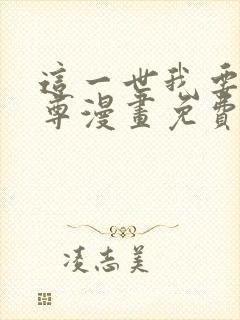 這一世我要
尊漫畫免費
凌志美